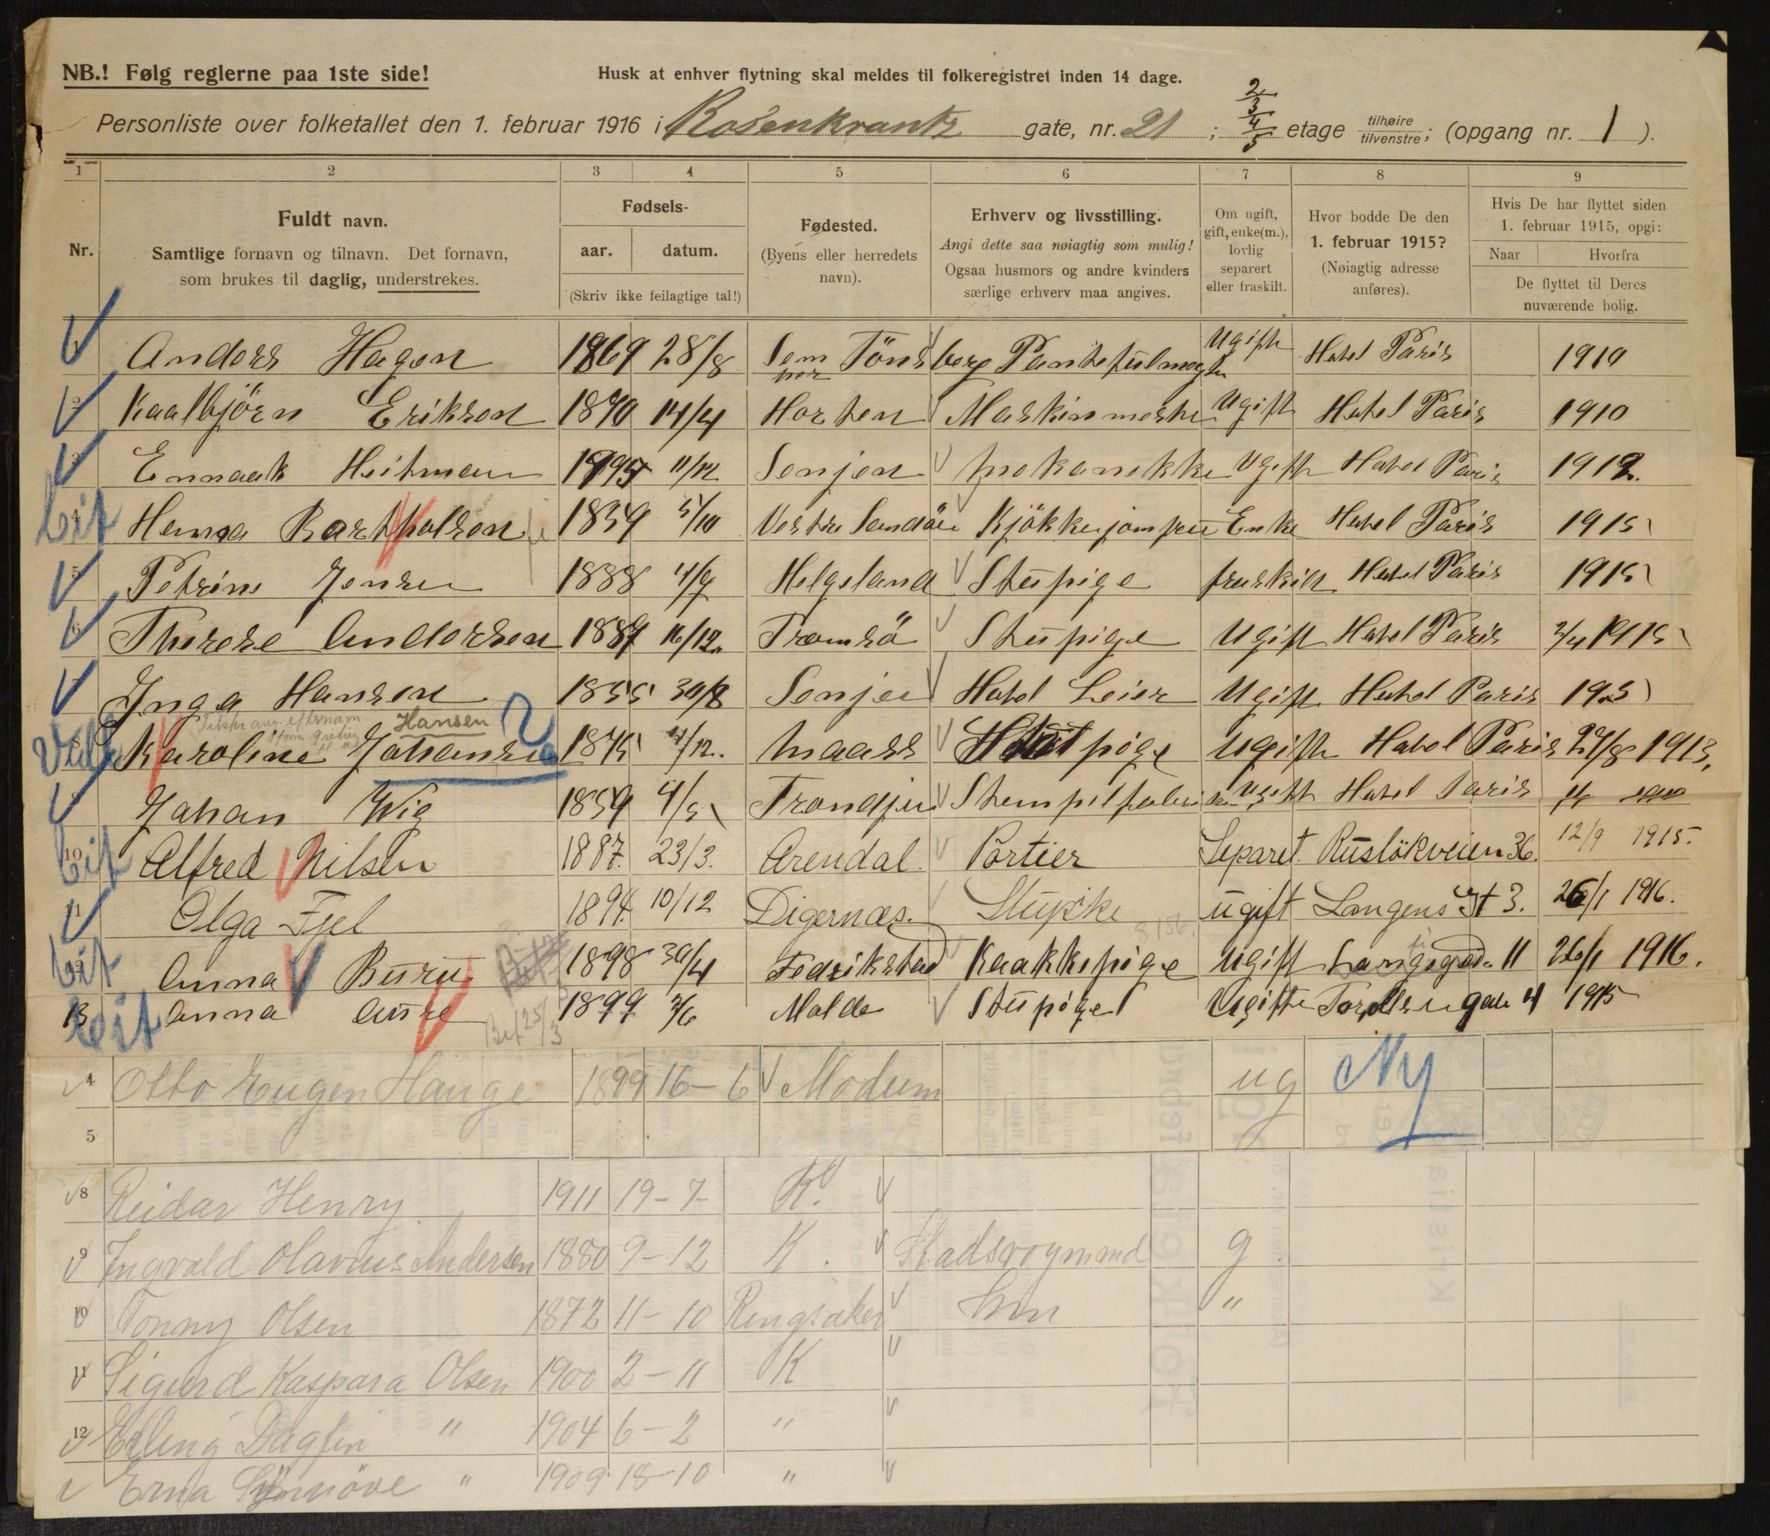 NB.! Følg reglerne paa 1ste side!
Husk at enhver flytning skal meldes til folkeregistret inden 14 dage.
Personliste over folketallet den 1. februar 1916 i Rosenkrantz gate, nr. 21 ; 2/3/4/5 etage tilhøire/tilvenstre; (opgang nr. 1 ).
1 2 3 4 5 6 7 8 9
Nr.
Fuldt navn.
Samtlige fornavn og tilnavn. Det fornavn,
som brukes til daglig, understrekes.
Fødsels-
aar. datum.
(Skriv ikke feilagtige tal!)
Fødested.
(Byens eller herredets
navn).
Erhverv og livsstilling.
Angi dette saa nøiagtig som mulig!
Ogsaa husmors og andre kvinders
særlige erhverv maa angives.
Om ugift,
gift, enke(m.),
lovlig
separert
eller fraskilt.
Hvor bodde De den
1. februar 1915?
(Nøiagtig adresse
anføres).
Hvis De har flyttet siden
1. februar 1915, opgi:
Naar Hvorfra
De flyttet til Deres
nuværende bolig.
Anders Hagen 1869 28/8 Sem Tönsberg Ugift Hotel Paris 1910
2 Kaalbjörn Erikson 1890 14/4 Horten Maskinmester Ugift Hotel Paris 1910
3 Heitman 11/12 Ugift Hotel Paris 1912
4 Bit Hanna 1839 5/10 Vestre Enke Hotel Paris 1915
5 Petrine Jensen 1888 Helgeland Stupige fraskilt Hotel Paris 1915
6 Therese Anderson 1887 16/12 Tromsö Stupige Ugift Hotel Paris 3/4 1915
7 Inga Hansen 1855 30/8 Hotel Ugift Hotel Paris
Karoline Johansen Hansen ? 1875 Maass pige Ugift Hotel Paris 27/8 1913,
Johan Wig 1859 4/5 Trondjem Ugift Hotel Paris
10 Bit Alfred Nilsen 1887. 23/3. Arendal. Portier Separet. Rusløkveien 36. 12/9 1915.
11 Olga Fjel 1894. 10/12 Digernæs. ugift Langens gt 3. 26/1 1916.
12 Bit Anna Buru 1898 30/4 Fedrikstad Kaakkepige Ugift 11 26/1 1916.
13 Bit Anna Aure 25/3 1899 3/6 Molde Stupige Ugift gate 4 1915
4 Otto Eugen Hauge 1899 16-6 Modum ug Ny
5
8 Reidar Henry 1911 19-7- K.
9 Ingvald Olavus Andersen 1880 9-12 K. g.
10 Tonny Olsen 1872 11-10 Ringsaker "
11 Sigurd Kaspara Olsen 1900 2-11 K
12 Erling Dagfin " 1904 6-2 "
Erna Synnöve " 1909 18-10 "